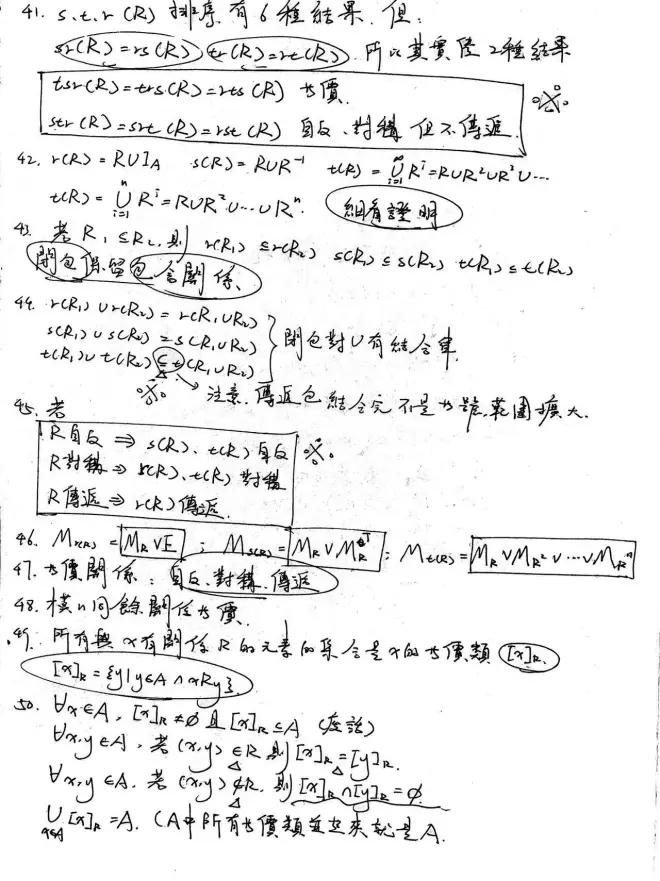 41. s.t.r (R) 排序有6種結果. 但:
sr(R)=rs(R) tr(R)=rt(R) 所以其實隻2種結果
tsr(R)=trs(R)=rts(R) 等價.
str(R)=srt(R)=rst(R) 自反、對稱 但不傳遞.
42. r(R) = R∪I_A s(R) = R∪R⁻¹ t(R) = ∪_{i=1}^{∞} Rⁱ = R∪R²∪R³∪⋯
t(R) = ∪_{i=1}^{n} Rⁱ = R∪R²∪⋯∪Rⁿ. 細看證明
43. 若 R₁ ⊆ R₂, 則 r(R₁) ⊆ r(R₂) s(R₁) ⊆ s(R₂) t(R₁) ⊆ t(R₂)
閉包保留包含關係.
44. r(R₁) ∪ r(R₂) = r(R₁∪R₂)
s(R₁) ∪ s(R₂) = s(R₁∪R₂) 閉包對∪有結合律.
t(R₁) ∪ t(R₂) ⊆ t(R₁∪R₂)
注意. 傳遞包結合完不是等號. 範圍擴大.
45. 若
R自反 ⇒ s(R)、t(R) 自反
R對稱 ⇒ r(R)、t(R) 對稱
R傳遞 ⇒ r(R) 傳遞.
46. M_{r(R)} = M_R∨E ; M_{s(R)} = M_R∨M_R^T ; M_{t(R)} = M_R∨M_{R²}∨⋯∨M_{Rⁿ}
47. 等價關係: 自反、對稱、傳遞
48. 模n同餘關係等價.
49. 所有與x有關係R的元素的集合是x的等價類 [x]_R.
[x]_R = {y|y∈A ∧ xRy}
50. ∀x∈A, [x]_R ≠ ∅ 且 [x]_R ⊆ A (廢話)
∀x,y∈A, 若 (x,y) ∈R 則 [x]_R = [y]_R.
∀x,y∈A. 若 (x,y) ∉R. 則 [x]_R ∩ [y]_R = ∅.
∪_{x∈A} [x]_R = A. (A中所有等價類並起來就是A.